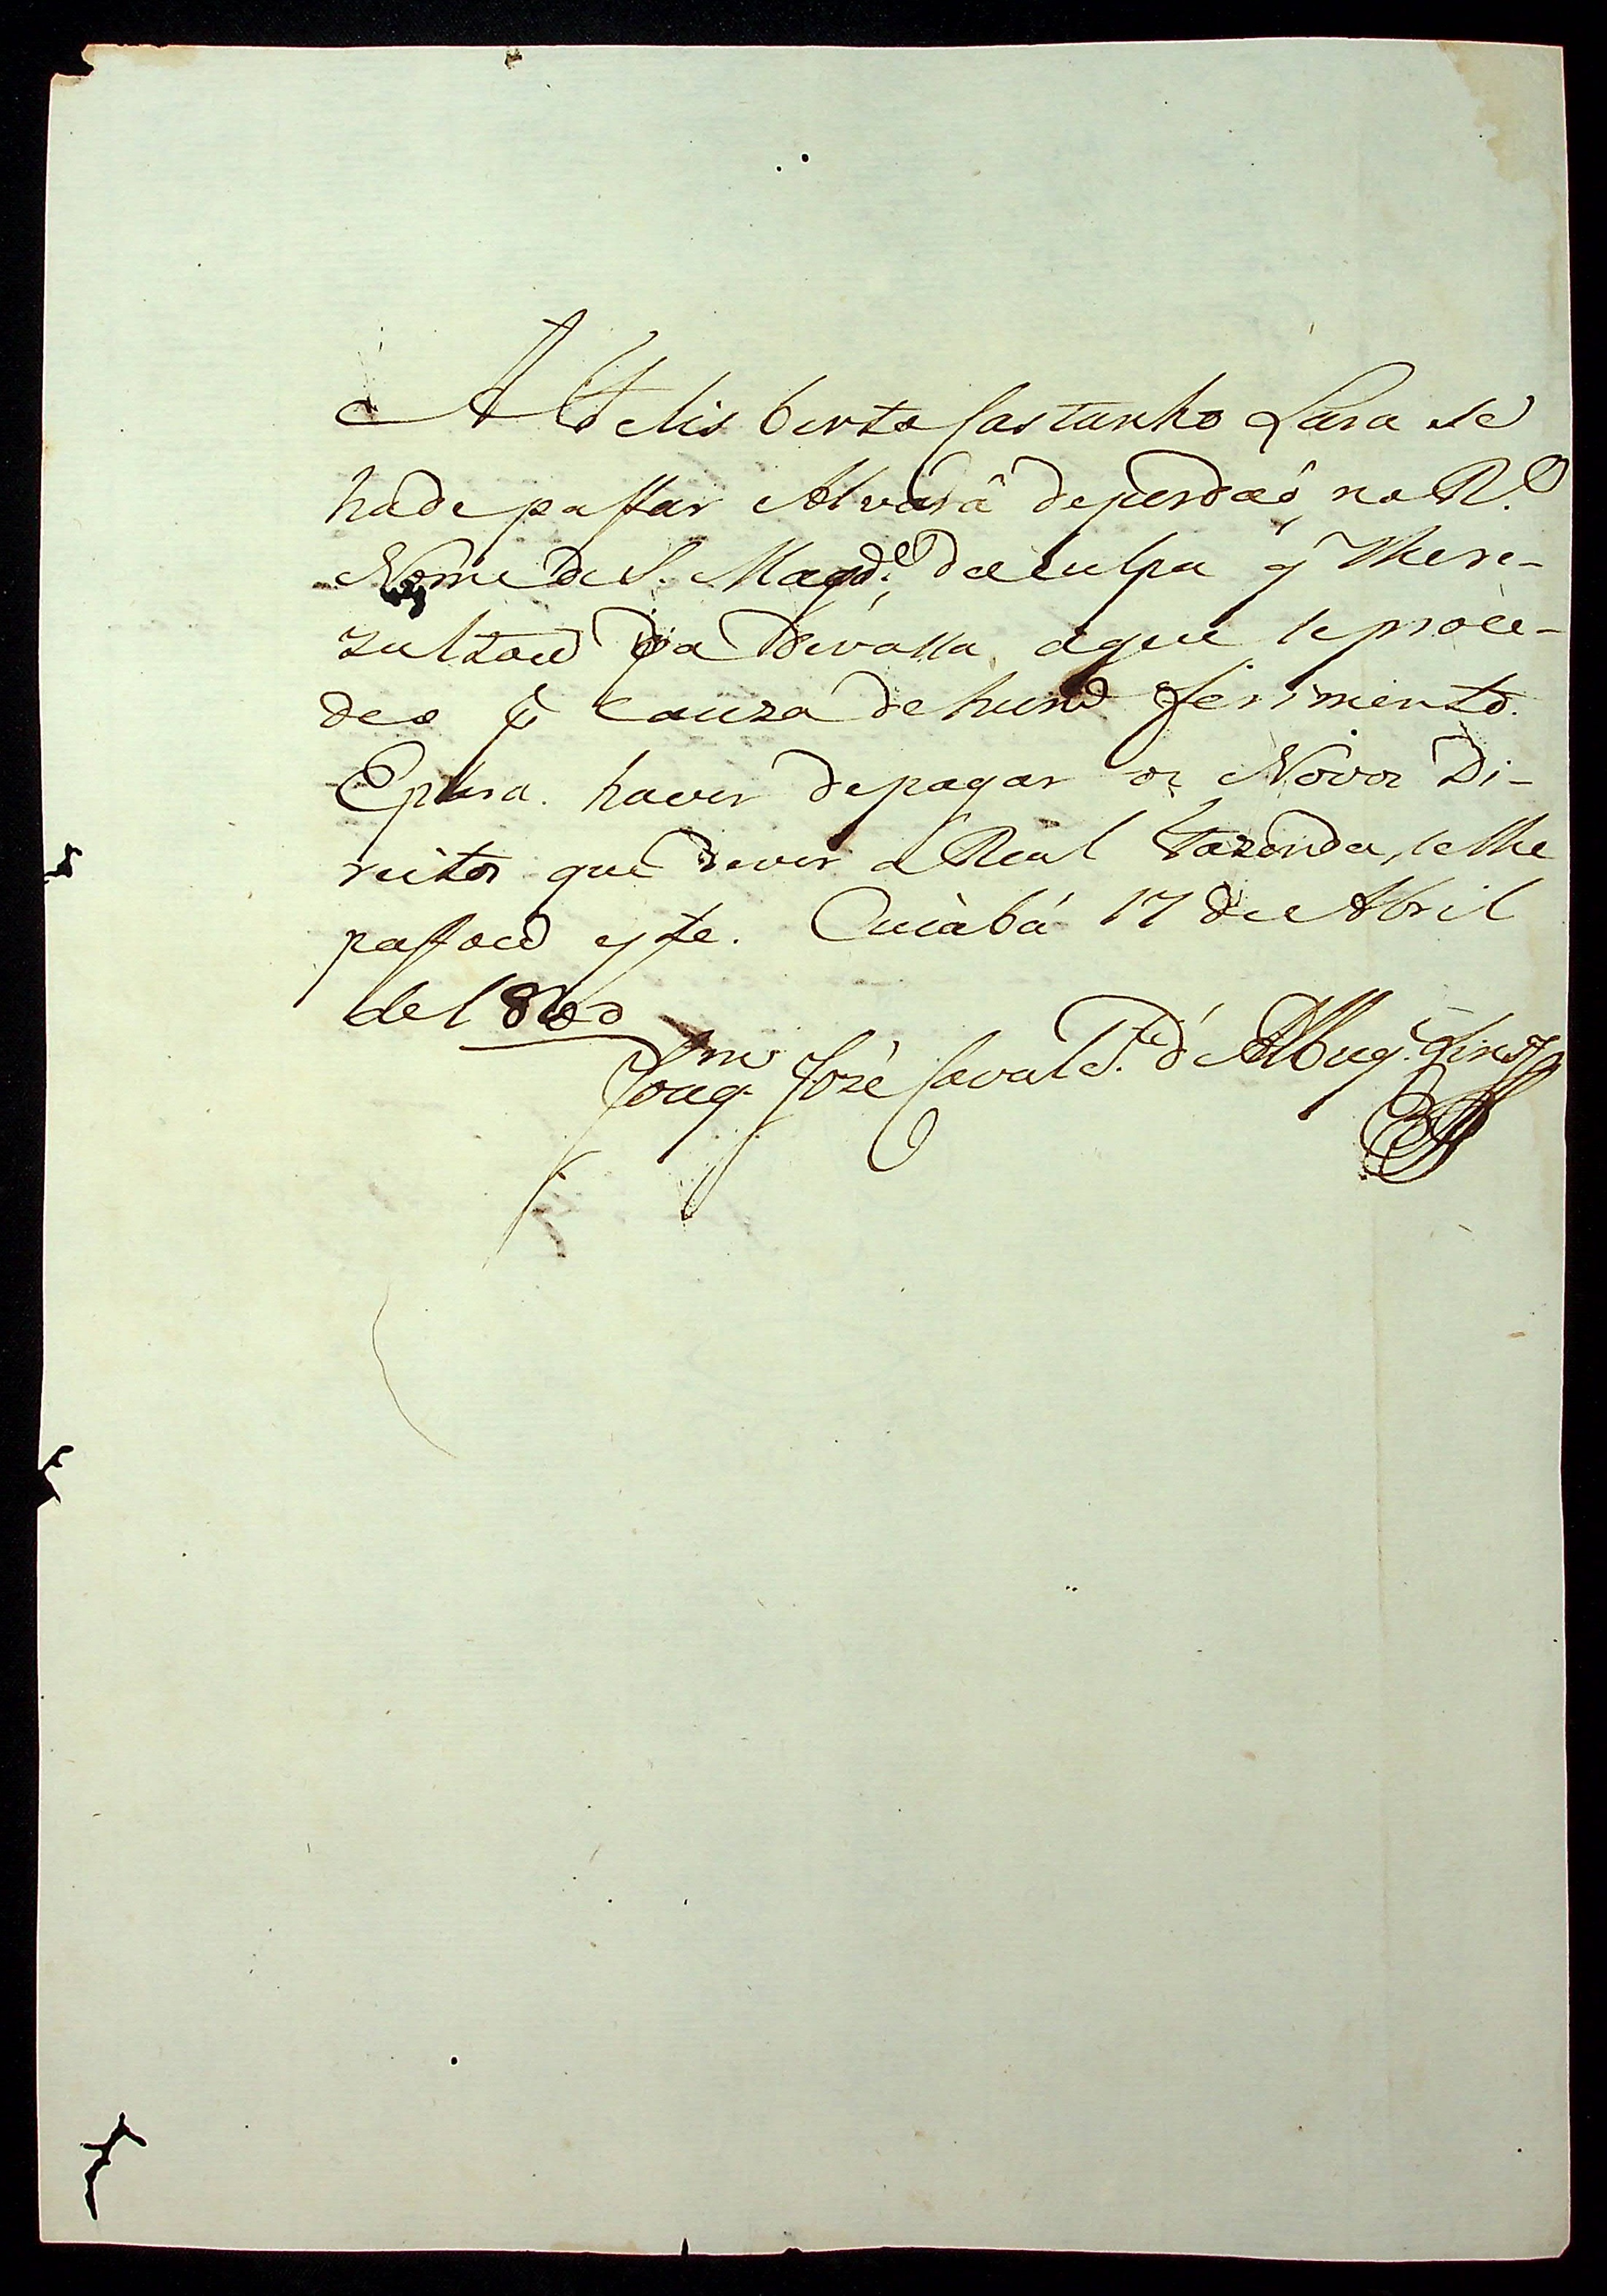 A Felisberto Castanho Lara se
hade passar Alvará de perdaõ, no R.l
Nome de S. Magd.e, da culpa q̃ lhe re-
zultou da Devassa, a que se proce-
deo p.r cauza de hum ferimento.
E p.a haver de pagar os Novos Di-
reitos que dever a Real Fazenda, se lhe
passou este. Cuiabá 17 de Abril
de 1800
Joaq.m José Caval.te d' Albuq.e Lins